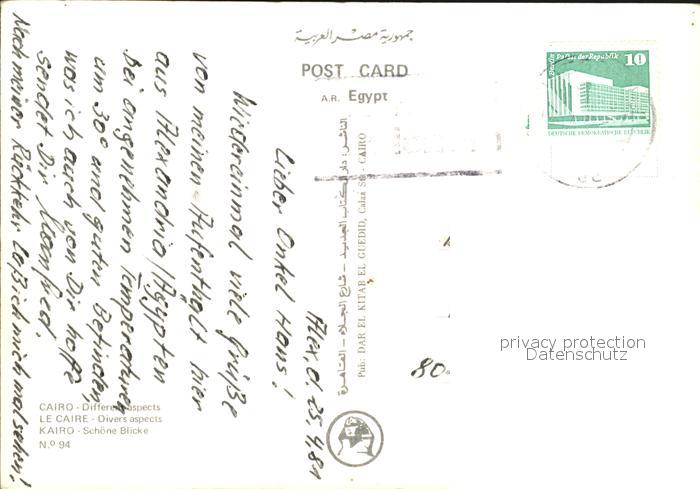 جمهورية مصر العربية
POST CARD
A.R. Egypt
Berlin Palast der Republik
10
DEUTSCHE DEMOKRATISCHE REPUBLIK
الناشر: دار الكتاب الجديد - شارع الجلاء - القاهرة
Pub: DAR EL KITAB EL GUEDID, Calaa Str. CAIRO
Alex, d. 25.4.81
Lieber Onkel Hans!
Wiedereinmal viele Grüße
von meinen Aufenthalt hier
aus Alexandria/Ägypten
Bei angenehmen Temperaturen
um 30° und guten Befinden,
was ich auch von Dir hoffe
sendet Dir Manfred.
Nach meiner Rückkehr laß ich mich mal sehen!
80.
privacy protection
Datenschutz
CAIRO - Different aspects
LE CAIRE - Divers aspects
KAIRO - Schöne Blicke
N.º 94